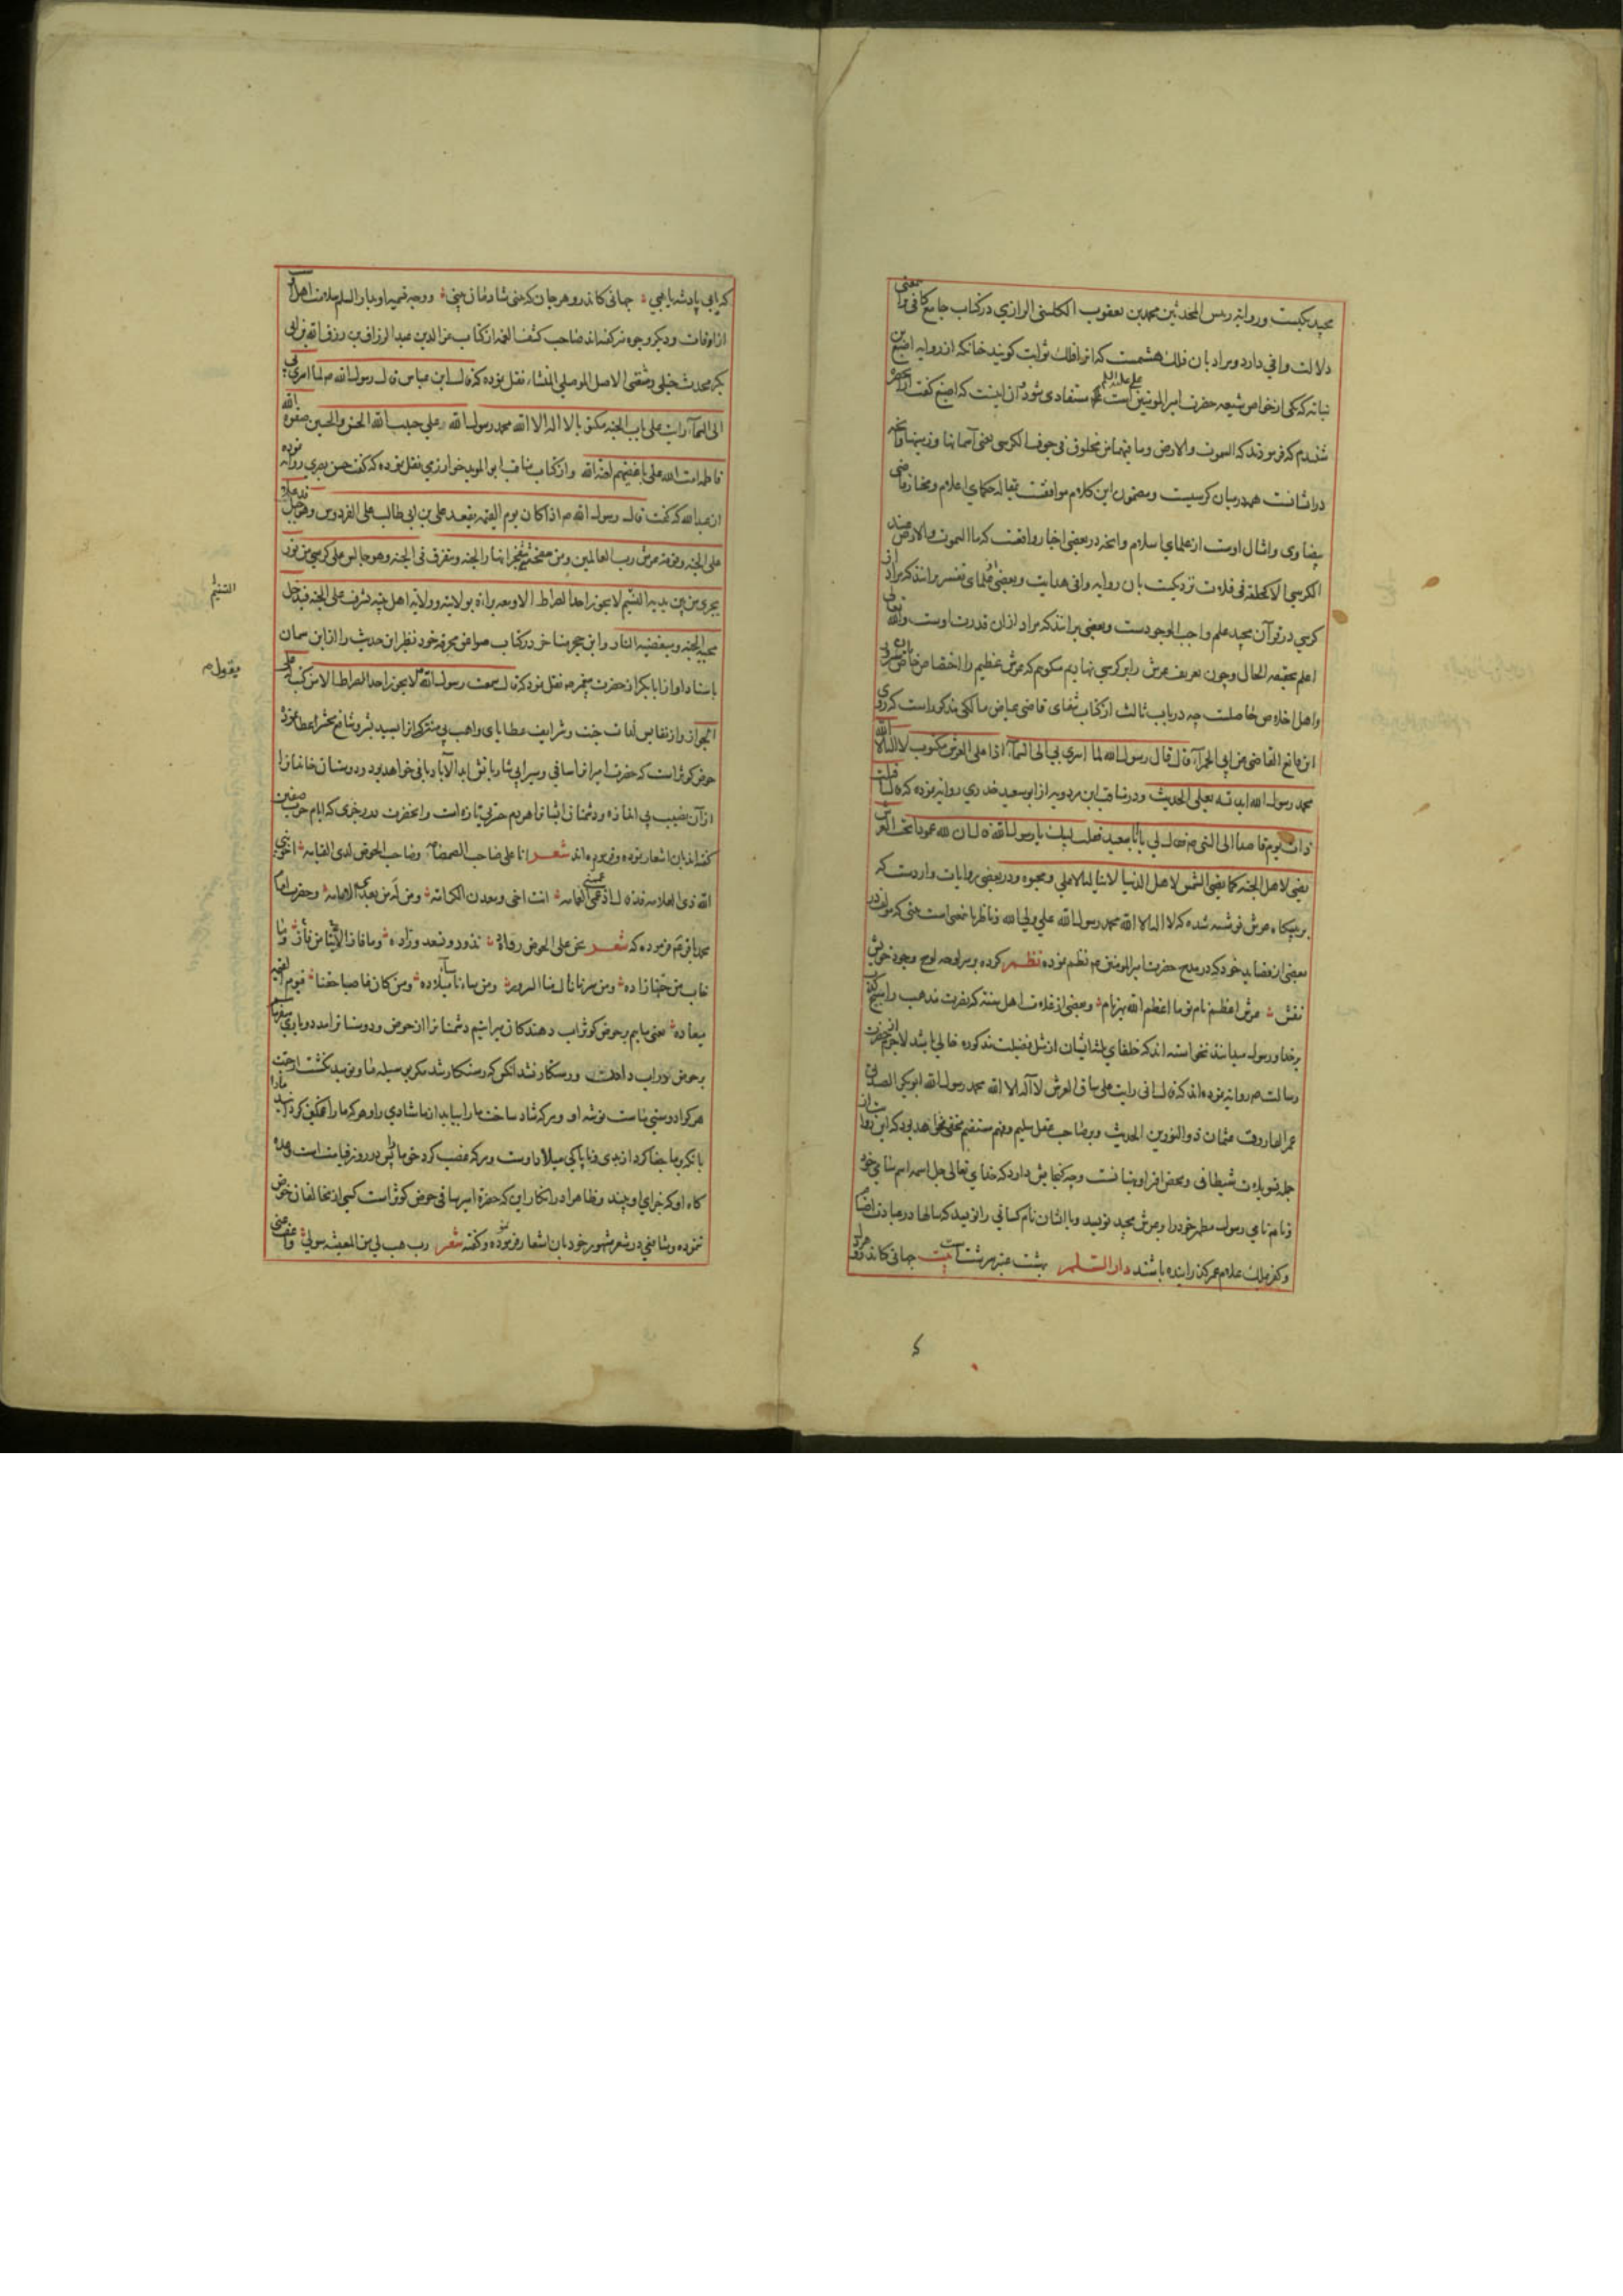 مجید یکیست وروایة رییس المحدثین محمد بن یعقوب الکلینی الرازی درکتاب جامع کافی برین معنی
دلالت وافی دارد ومراد بان فلك هشتمست که انرا فلك ثوابت کویند چنانکه از روایه اصبغ بن
نباته که یکی ازخواص شیعه حضرت امیرالمؤمنین علی علیه السلم است مستفاد می شود وان اینست که اصبغ کفت از انحضرة
شنیدم که فرمودند که السموت والارض وما فیهما من مخلوق فی جوف الکرسی یعنی آسمانها وزمینها وانچه
دراشانست همه درمیان کرسیست ومضمون این کلام موافقست بمقاله حکمای اعلام ومختار قاضی
بیضاوی وامثال اوست ازعلمای اسلام وانچه دربعضی اخبار واقعست که ما السموت والارض عند
الکرسی الا کحلقة فی فلاة نزدیکست بان روایه وافی هدایت وبعضی از علمای تفسیر برانند که مراد از
کرسی درقرآن مجید علم واجب الوجودست وبعضی برانند که مراد ازان قدرت اوست والله تعالی
اعلم بحقیقه الحال وچون تعریف عرش را برکرسی نهادیم میکوییم که عرش عظیم را اختصاص خاص بشیعیان
واهل اخلاص حاصلست چه درباب ثالث ازکتاب شفای قاضی عیاض مالکی مذکوراست که روی
ابن قانع القاضی عن ابی الحمرآء قال قال رسول الله لما اسری بی الی السمآء اذا علی العرش مکتوب لا اله الا الله
محمد رسول الله ایدته بعلی الحدیث ودرمناقب ابن مردویه از ابوسعید خدری روایة نموده که قال کنت
ذات یوم قاصدا الی النبی م فقال لی یا ابا سعید فقلت لبیك یا رسول الله قال ان لله عمودا تحت العرش
یضی لاهل الجنه کما یضی الشمس لاهل الدنیا لا یناله الا علی ومحبوه ودربعضی روایات واردست که
برپیکاه عرش نوشته شده که لا اله الا الله محمد رسول الله علی ولی الله وناظر بانمعنی است بیتی که مولف در
بعضی از قصاید خود که درمدح حضرت امیرالمؤمنین م نظم نموده نظم کرده ومرا لوحه لوح وجود خویش
نقش عرش اعظم نام تو ما اعظم الله بهر نام وبعضی ازغلات اهل سنه که نصرت مذهب را به کذب
برخدا ورسول میدانند نخواسته اند که خلفای ثلثه ایشان ازمثل فضیلت مذکوره خالی باشند لاجرم ازحضرت
رسالت م روایة نموده اند که قال انی رایت علی ساق العرش لا اله الا الله محمد رسول الله ابوبکر الصدیق
عمر الفاروق عثمان ذو النورین الحدیث وبرصاحب عقل سلیم وفهم مستقیم مخفی نخواهد بود که این روایت از
جمله تسویلات شیطانی ومحض افترا وبهتانست وچه کنجایش دارد که خدای تعالی جل اسمه اسم سامی خود
ونام نامی رسول مطهر خود را برعرش مجید نویسد وبا ایشان نام کسانی را نویسد که سالها درعبادت اصنام
وکفر ملك علام عمر کذرانیده باشند دار السلم بهشت عنبرسرشت است بیت جهانی کاندرو هر دل
که ابی پادشه یابی جهانی کاندرو هر جان که بنی شادمان بینی ووجه تسمیه او بدار السلم سلامت اهل آنست
از آفات ودیکر وجوه نیز کفته اند صاحب کشف الغمه ازکتاب عز الدین عبد الرزاق بن رزق الله بن ابی
بکر محدث حنبلی رسعنی الاصل الموصلی المنشاء نقل نموده که قال ابن عباس قال رسول الله م لما اسری بی
الی السمآء رایت علی باب الجنه مکتوبا لا اله الا الله محمد رسول الله علی حبیب الله الحسن والحسین صفوة الله
فاطمه امت الله علی باغضیهم لعنة الله وازکتاب مناقب ابو الموید خوارزمی نقل نموده که کفت حسن بصری روایه نموده
از عبد الله که کفت قال رسول الله م اذا کان یوم القیمه یقعد علی بن ابی طالب علی الفردوس وهو جبل قد علا
علی الجنه وفوقه عرش رب العالمین ومن سفحه یتفجر انهار الجنه ویتفرق فی الجنه وهو جالس علی کرسی من نور
یجری من بین یدیه التسنیم لا یجوز احد الصراط الا ومعه براة بولایته وولایة اهل بیته یشرف علی الجنه فیدخل
محبیه الجنه ومبغضیه النار وابن حجر متاخر درکتاب صواعق محرقه خود نظیر این حدیث را از ابن سمان
باسناد او از ابابکر از حضرت پیغمبر م نقل نموده که قال سمعت رسول الله م لا یجوز احد الصراط الا من کتب له علی
الجواز واز نفایس لذات جنت وشرایف عطایای واهب بی منت که انرا بسید بشر وشافع محشر اعطا نموده
حوض کوثر است که حضرت امیر انرا ساقی وسیرابی شاربانش ابد الاباد باقی خواهد بود ودوستان خاندان را
از آن نصیب بی اندازه ودشمنان ایشانرا هردم حزنی تازه است وانحضرت در رجزی که ایام حرب صفین
کفته اند بان اشعار نموده وفرموده اند شعر انا علی صاحب الصمصامه وصاحب الحوض لدی القیامه اخو نبی
الله ذی العلامه قد قال اذ عممنی العمامه انت اخی ومعدن الکرامه ومن له من بعدی الامامه وحضرت امام
محمد باقر م فرموده که شعر نحن علی الحوض روّاده نذود ونسعد ورّاده وما فاز من فاز الا بنا وما
خاب من حبنا زاده ومن سرنا نال منا السرور ومن ساءنا ساء میلاده ومن کان غاصبا حقنا فیوم القیمه
میعاده یعنی ماییم برحوض کوثر اب دهندکان میرانیم دشمنانرا از حوض ودوستانرا مدد ویاری میفرماییم
برحوض نوراب دادنست ورستکار نشد انکس که رستکار شد مکر بوسیله ما ونومید نکشت از رحمت
هرکرا دوستی ماست توشه او وهرکه شاد ساخت ما را بیابد از ما شادی را وهرکه ما را غمکین کرد
یا تکبر وجفا کرد از بدی وناپاکی میلاد اوست وهرکه غصب کرد حق ما پس در روز قیامت است وعده
کاه او که جزای او بیند وظاهرا درانکار این که حضرة امیر ساقی حوض کوثر است کسی از مخالفان خوض
ننموده وشافعی درشعر مشهور خود بان اشعار فرموده وکفته شعر رب هب لی من المعیشه سولی واعف عنی
التسنیم
یقول م